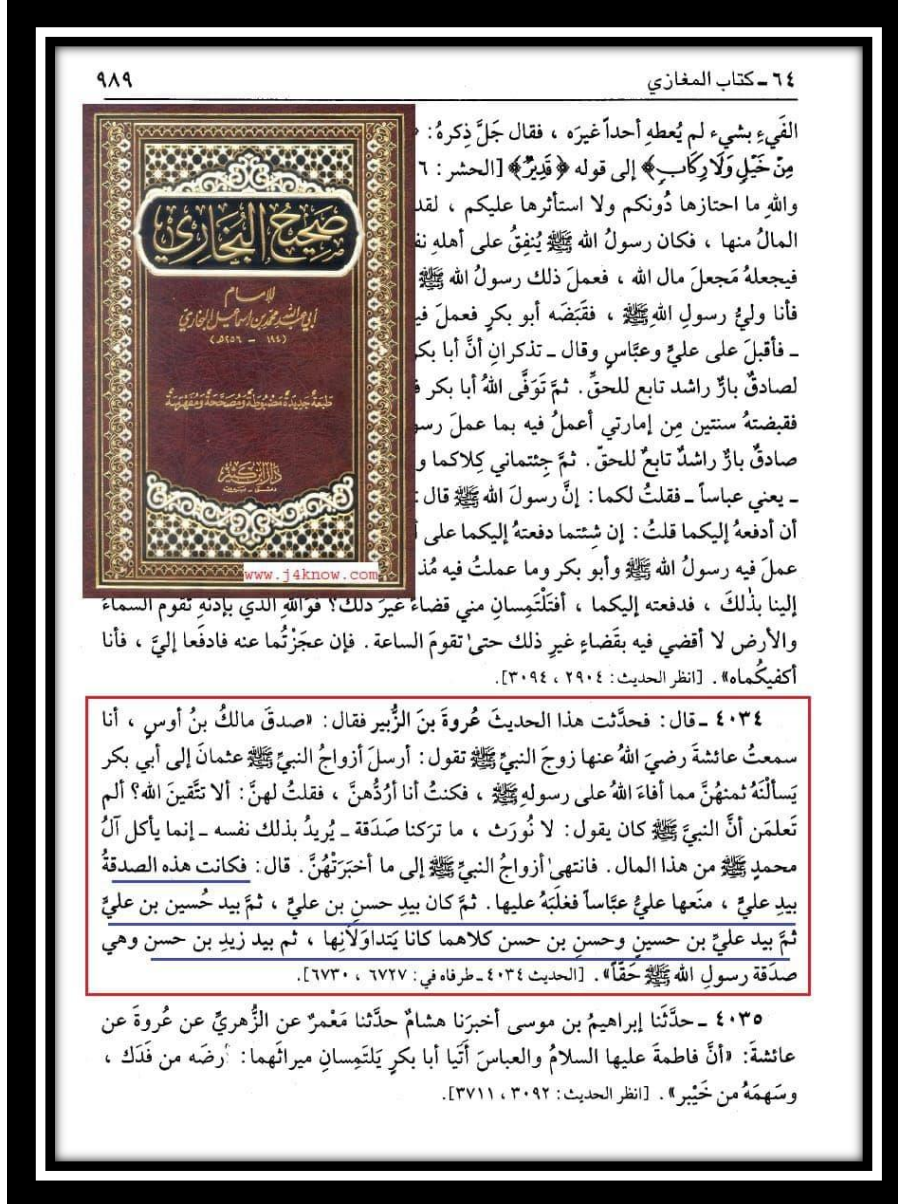 ٦٤ ـ كتاب المغازي
٩٨٩
الفَيءِ بشيء لم يُعطهِ أحداً غيرَه ، فقال جَلَّ ذِكرهُ :
مِنْ خَيْلٍ وَلَا رِكَابٍ﴾ إلى قوله ﴿قَدِيرٌ﴾ [الحشر : ٦
واللهِ ما احتازها دُونكم ولا استأثرها عليكم ، لقد
المالُ منها ، فكان رسولُ الله ﷺ يُنفِقُ على أهلهِ
فيجعلهُ مَجعلَ مال الله ، فعملَ ذلك رسولُ الله ﷺ
فأنا وليُّ رسولِ اللهِ ﷺ ، فقَبَضَه أبو بكرٍ فعملَ
ـ فأقبلَ على عليٍّ وعبَّاسٍ وقال ـ تذكرانِ أنَّ أبا
لصادقٌ بارٌّ راشد تابع للحقِّ . ثمَّ تَوَفَّى اللهُ أبا بكر
فقبضتهُ سنتين مِن إمارتي أعملُ فيه بما عملَ
صادقٌ بارٌّ راشدٌ تابعٌ للحقّ . ثمَّ جِئتماني كِلاكما
ـ يعني عباساً ـ فقلتُ لكما : إنَّ رسولَ الله ﷺ قال :
أن أدفعهُ إليكما قلتُ : إن شِئتما دفعتهُ إليكما على
عملَ فيه رسولُ الله ﷺ وأبو بكر وما عملتُ فيه
إلينا بذٰلكَ ، فدفعته إليكما ، أفتَلْتَمِسانِ مني قضاءً غيرَ ذلك؟ فوَاللهِ الذي بإذنهِ تقوم السماءُ
والأرض لا أقضي فيه بقَضاءٍ غيرِ ذلك حتىٰ تقومَ الساعة . فإن عجَزْتُما عنه فادفَعا إليَّ ، فأنا
أكفيكُماه» . [انظر الحديث : ٢٩٠٤ ، ٣٠٩٤].
٤٠٣٤ ـ قال : فحدَّثت هذا الحديثَ عُروةَ بنَ الزُّبير فقال : «صدقَ مالكُ بنُ أوسٍ ، أنا
سمعتُ عائشةَ رضيَ اللهُ عنها زوجَ النبيِّ ﷺ تقول : أرسلَ أزواجُ النبيِّ ﷺ عثمانَ إلى أبي بكر
يَسألْنَهُ ثمنهُنَّ مما أفاءَ اللهُ على رسولهِ ﷺ ، فكنتُ أنا أرُدُّهنَّ ، فقلتُ لهنَّ : ألا تتَّقينَ الله؟ ألم
تَعلمَن أنَّ النبيَّ ﷺ كان يقول : لا نُورَث ، ما ترَكنا صَدَقة ـ يُريدُ بذلك نفسه ـ إنما يأكل آلُ
محمدٍ ﷺ من هذا المال . فانتهىٰ أزواجُ النبيِّ ﷺ إلى ما أخبَرَتْهُنَّ . قال : فكانت هذه الصدقةُ
بيدِ عليٍّ ، منَعها عليُّ عبَّاساً فغلَبَهُ عليها . ثمَّ كان بيدِ حسنِ بن عليٍّ ، ثمَّ بيد حُسين بن عليٍّ
ثمَّ بيد عليِّ بن حسينٍ وحسنِ بن حسن كلاهما كانا يَتداوَلَانِها ، ثم بيد زيدِ بن حسن وهي
صدَقة رسولِ الله ﷺ حَقّاً» . [الحديث ٤٠٣٤ ـ طرفاه في : ٦٧٢٧ ، ٦٧٣٠].
٤٠٣٥ ـ حدَّثَنا إبراهيمُ بن موسى أخبرَنا هشامٌ حدَّثنا مَعْمرٌ عن الزُّهريِّ عن عُروةَ عن
عائشةَ : «أنَّ فاطمةَ عليها السلامُ والعباسَ أتَيا أبا بكرٍ يَلتَمِسانِ ميراثَهما : أرضَه من فَدَك ،
وسَهمَهُ من خَيْبر» . [انظر الحديث : ٣٠٩٢ ، ٣٧١١].
صَحِيحُ البُخَارِي
للإمام
أبي عبد الله محمد بن إسماعيل البخاري
(١٩٤ – ٢٥٦ه)
طبعة جديدة مضبوطة ومصححة ومفهرسة
دار ابن كثير
دمشق - بيروت
www.j4know.com